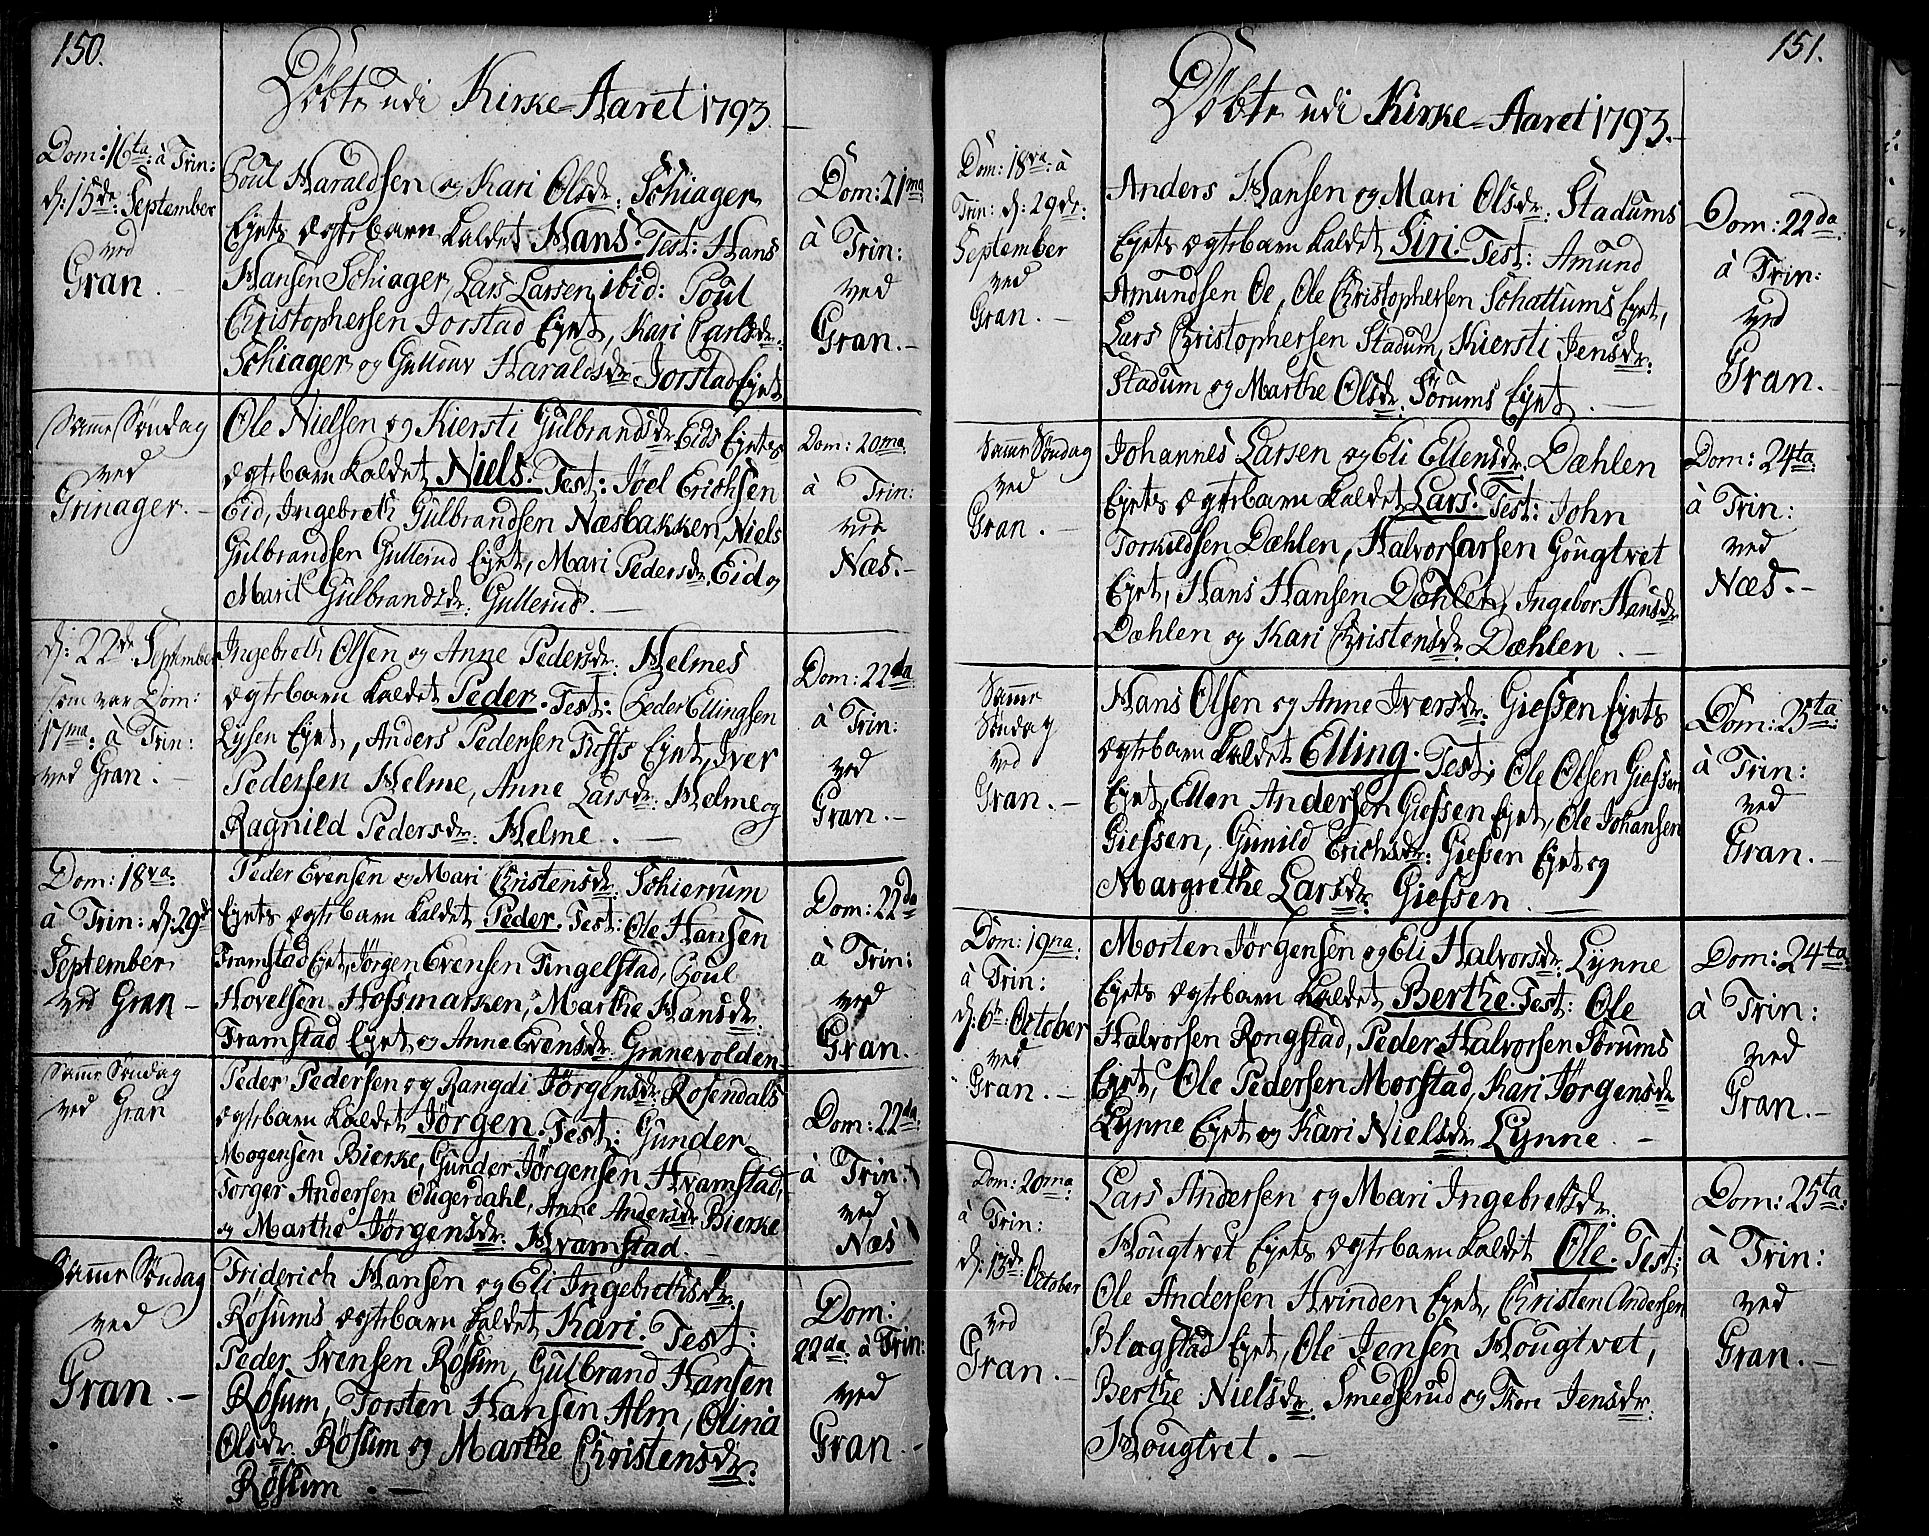 150.
Döbte udi Kirke=Aaret 1793.
Dom: 16ta: à Trin:
d: 15de: September
ved
Gran.
Poul Haraldsen og Kari Olsdr: Schiager
Eyets ægtebarn kaldet Hans. Test: Hans
Hansen Schiager, Lars Larsen ibid: Poul
Christophersen Jorstad Eyet, Kari Carlsdr:
Schiager og Gullour Haraldsdr: Jorstad Eyet
Dom: 21ma
à Trin:
ved
Gran.
Samme Söndag
ved
Grinager.
Ole Nielsen og Kiersti Gulbrandsdr: Eids Eyets
ægtebarn kaldet Niels. Test: Joel Erichsen
Eid, Ingebreth Gulbrandsen Næsbakken, Niels
Gulbrandsen Gullerud Eyet, Mari Pedersdr: Eid og
Marit Gulbrandsdr: Gullerud.
Dom: 20ma
à Trin:
ved
Næs.
d: 22de September
som var Dom:
17ma: à Trin:
ved Gran.
Ingebreth Olsen og Anne Pedersdr: Helmes
ægtebarn kaldet Peder. Test: Peder Ellingsen
Lysen Eyet, Anders Pedersen Toffs Eyet, Iver
Pedersen Helme, Anne Larsdr: Helme og
Ragnild Pedersdr: Helme.
Dom: 22da
à Trin:
ved
Gran.
Dom: 18va:
à Trin: d: 29d
September
ved Gran
Peder Evensen og Mari Christensdr: Schierrum
Eyets ægtebarn kaldet Peder. Test: Ole Hansen
Framstad Eyet, Jörgen Evensen Tingelstad, Poul
Hovelsen Hofsmarken, Marthe Hansdr:
Framstad Eyet og Anne Evensdr: Granevolden
Dom: 22da
à Trin:
ved
Gran.
Samme Söndag
ved Gran
Peder Pedersen og Rangdi Jörgensdr: Rosendals
ægtebarn kaldet Jörgen. Test: Gunder
Mogensen Bierke, Gunder Jörgensen Hvamstad,
Torger Andersen Ougerdahl, Anne Andersdr: Bierke
og Marthe Jörgensdr: Hvamstad.
Dom: 22da
à Trin:
ved
Næs
Samme Söndag
ved
Gran.
Friderich Hansen og Eli Ingebrethsdr:
Rösums ægtebarn kaldet Kari. Test:
Peder Svensen Rösum, Gulbrand Hansen
Rösum, Torsten Hansen Alm, Olina
Olsdr: Rösum og Marthe Christensdr:
Rösum.
Dom:
22da: à Trin:
ved
Gran.
151.
Döbte udi Kirke=Aaret 1793.
Dom: 18va: à
Trin: d: 29de:
September
ved
Gran.
Anders Hansen og Mari Olsdr: Stadums
Eyets ægtebarn kaldet Siri. Test: Amund
Amundsen Oe, Ole Christophersen Schattums Eyet,
Lars Christophersen Stadum, Kiersti Jensdr:
Stadum og Marthe Olsdr: Sörums Eyet.
Dom: 22da
à Trin:
ved
Gran.
Samme Söndag
ved
Gran.
Johannes Larsen og Eli Ellensdr: Dæhlen
Eyets ægtebarn kaldet Lars. Test: John
Torkildsen Dæhlen, Halvor Larsen Gougtvet
Eyet, Hans Hansen Dæhlen, Ingebor Hansdr
Dæhlen og Kari Christensdr: Dæhlen.
Dom: 24ta:
à Trin:
ved
Næs.
Samme
Söndag
ved
Gran.
Hans Olsen og Anne Iversdr: Giefsen Eyets
ægtebarn kaldet Elling. Test: Ole Olsen Giefsen
Eyet, Ellen Andersen Giefsen Eyet, Ole Johansen
Giefsen, Gunild Erichsdr: Giefsen Eyet og
Margrethe Larsdr: Giefsen.
Dom: 25ta:
à Trin:
ved
Gran.
Dom: 19na:
à Trin:
d: 6te October
ved
Gran.
Morten Jörgensen og Eli Halvorsdr: Lynne
Eyets ægtebarn kaldet Berthe. Test: Ole
Halvorsen Rongstad, Peder Halvorsen Sörums
Eyet, Ole Pedersen Morstad, Kari Jörgensdr
Lynne Eyet og Kari Nielsdr: Lynne.
Dom: 24ta:
à Trin:
ved
Gran.
Dom: 20ma:
à Trin:
d: 13de October
ved
Gran.
Lars Andersen og Mari Ingebretsdr:
Hougtvet Eyets ægtebarn kaldet Ole. Test:
Ole Andersen Hvinden Eyet, Christen Andersen
Blagstad Eyet, Ole Jensen Hougtvet,
Berthe Nielsdr: Smedserud og Thore Jensdr:
Hougtvet.
Dom: 25ta:
à Trin:
ved
Gran.